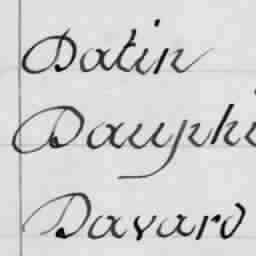 Datin
Dauphi
Davaro